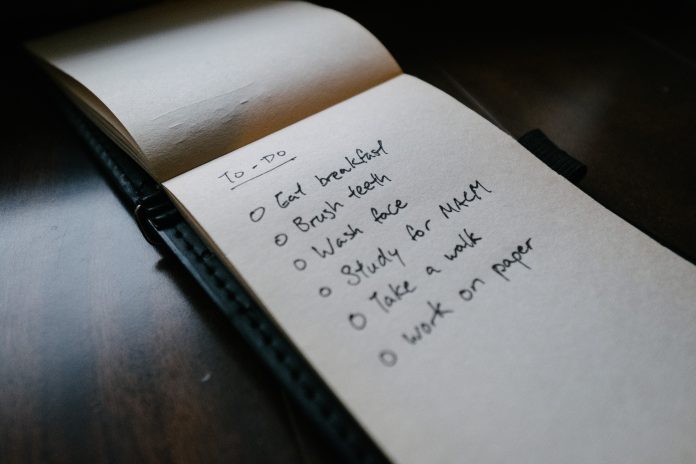 To-Do
Eat breakfast
Brush teeth
Wash face
Study for MACM
Take a walk
Work on paper